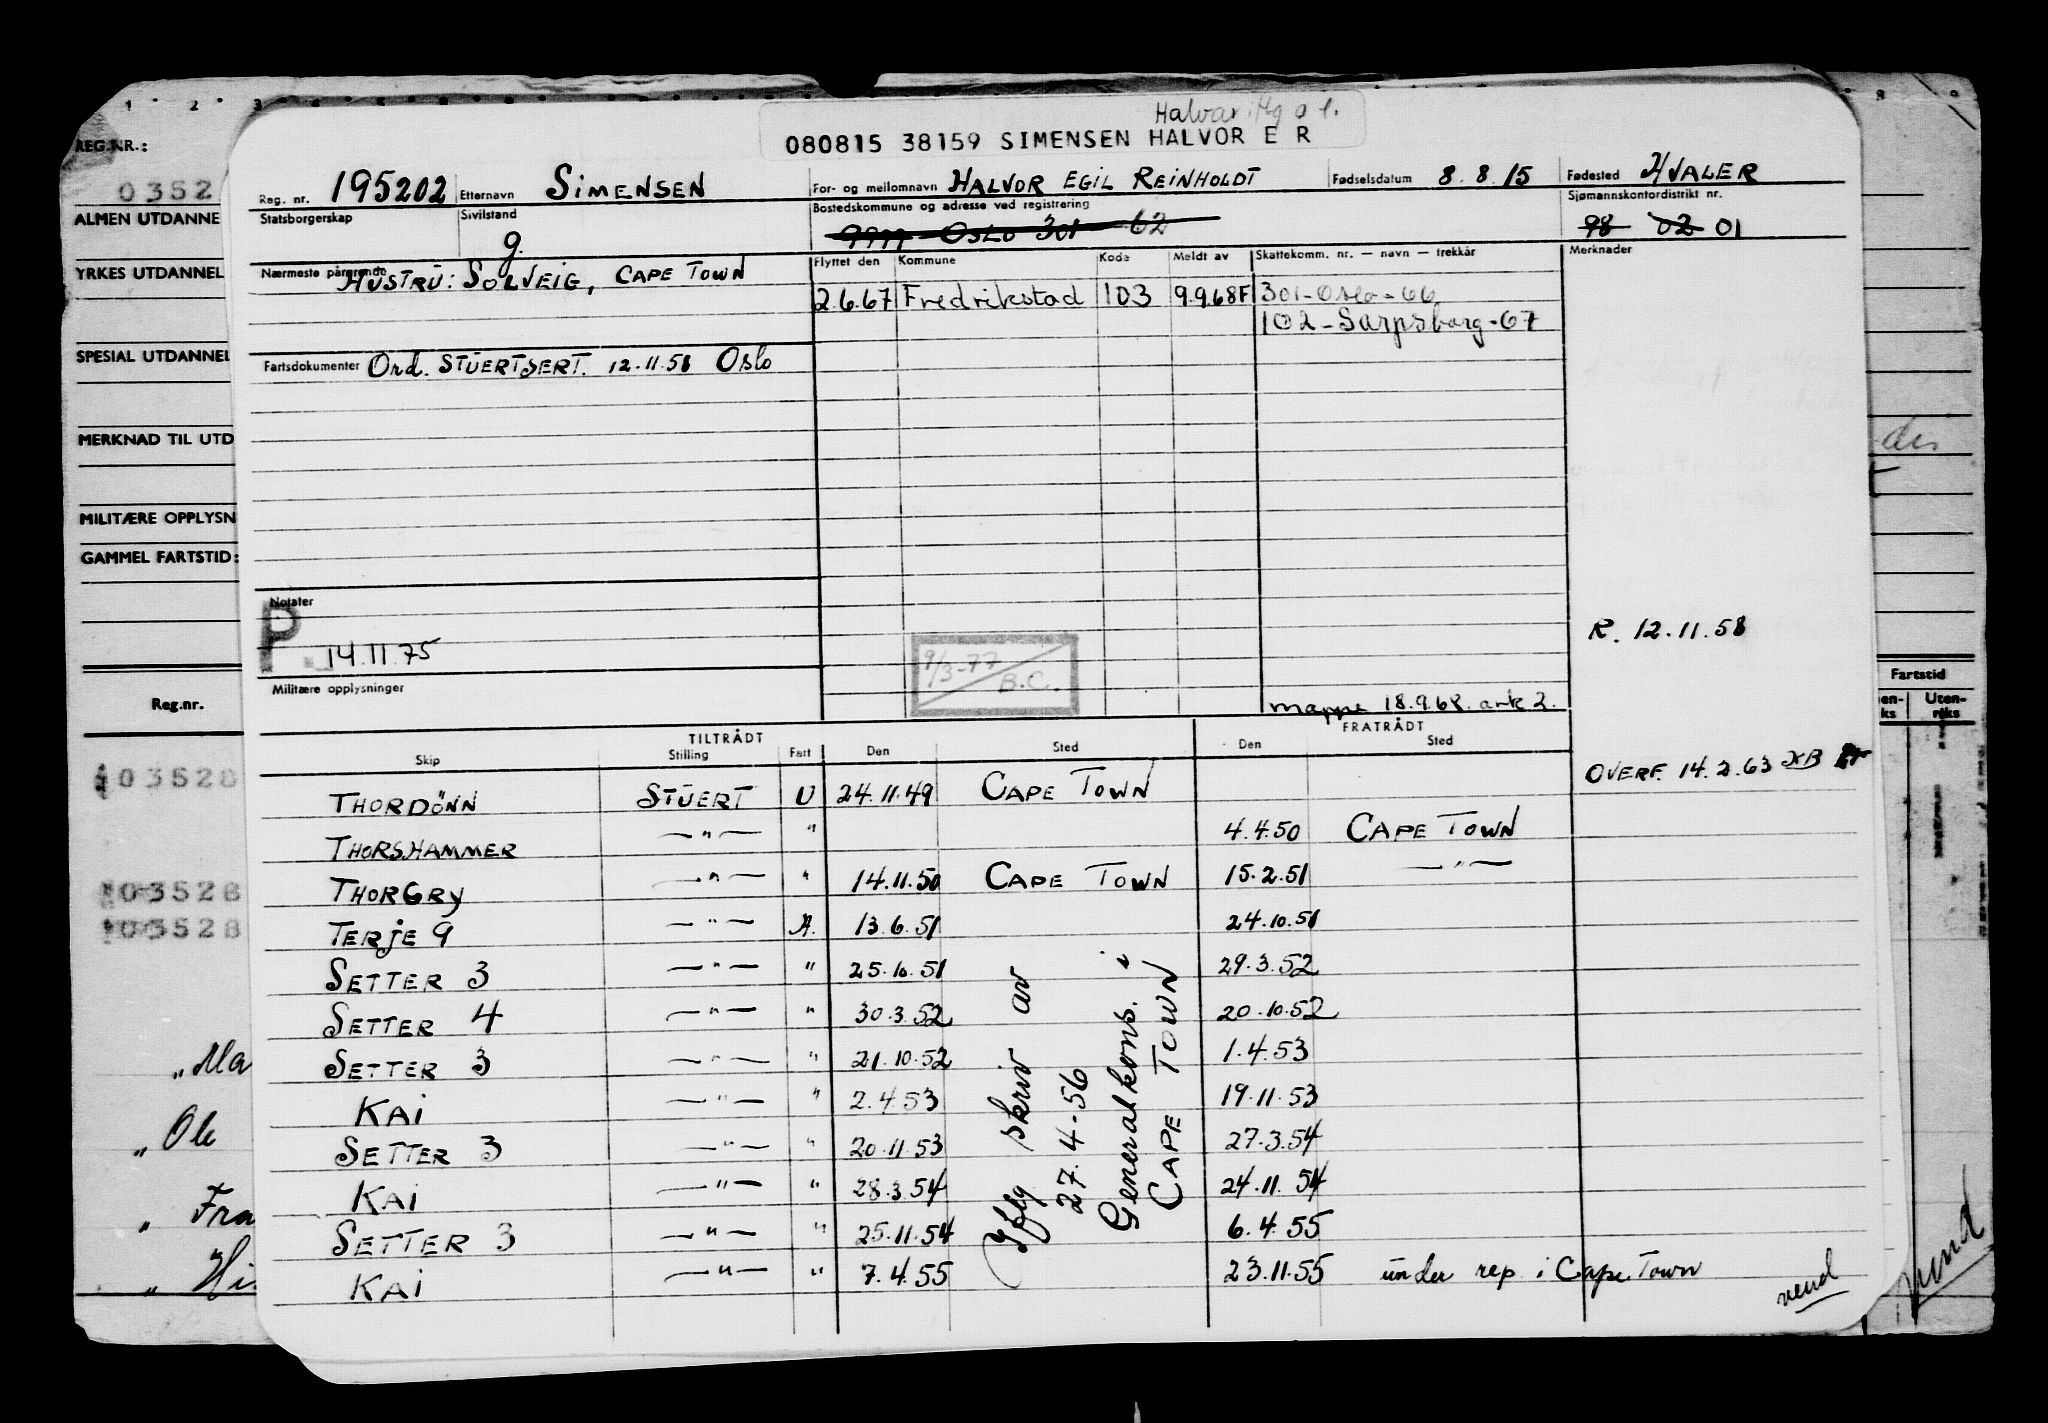 1 2 3
Halvar
080815 38159 SIMENSEN HALVOR E R
REG.NR.:
0352
Reg. nr. 195202 Etternavn SIMENSEN For- og mellomnavn HALVOR EGIL REINHOLDT Fødselsdatum 8.8.15 Fødested HVALER
ALMEN UTDANNE
Statsborgerskap Sivilstand g. Bostedskommune og adresse ved registrering 9999 OSLO 301 62 Sjømannskontordistrikt nr. 98 02 01
YRKES UTDANNEL
Nærmeste pårørende HUSTRU: SOLVEIG, CAPE TOWN
Flyttet den Kommune Kode Meldt av Skattekomm. nr. — navn — trekkår Merknader
2.6.67 Fredrikstad 103 9.9.68F 301-Oslo-66
102-Sarpsborg-67
SPESIAL UTDANNEL
Fartsdokumenter Ord. STUERTSERT. 12.11.58 Oslo
MERKNAD TIL UTD
MILITÆRE OPPLYSN
GAMMEL FARTSTID:
Notater
P. 14.11.75
R. 12.11.58
9/3-77 B.C.
Militære opplysninger
mappe 18.9.68. ark 2.
Reg.nr.
Fartstid
en-ks Uten-riks
TILTRÅDT FRATRÅDT
Skip Stilling Fart Den Sted Den Sted
OVERF. 14.2.63 KB
03528
THORDÖNN STUERT U 24.11.49 CAPE TOWN
THORSHAMMER —"— " 4.4.50 CAPE TOWN
03528
THORGRY —"— " 14.11.50 CAPE TOWN 15.2.51 —"—
03528
TERJE 9 —"— A. 13.6.51 24.10.51
SETTER 3 —"— " 25.10.51 29.3.52
SETTER 4 —"— " 30.3.52 20.10.52
SETTER 3 —"— " 21.10.52 1.4.53
KAI —"— " 2.4.53 19.11.53
SETTER 3 —"— " 20.11.53 27.3.54
KAI —"— " 28.3.54 24.11.54
SETTER 3 —"— " 25.11.54 6.4.55
KAI —"— " 7.4.55 23.11.55 under rep i Cape Town
(Iflg skriv av
27.4-56
Generalkons. i
CAPE TOWN
"Ma
" Ole
" Fra
" Hi
vend
vend